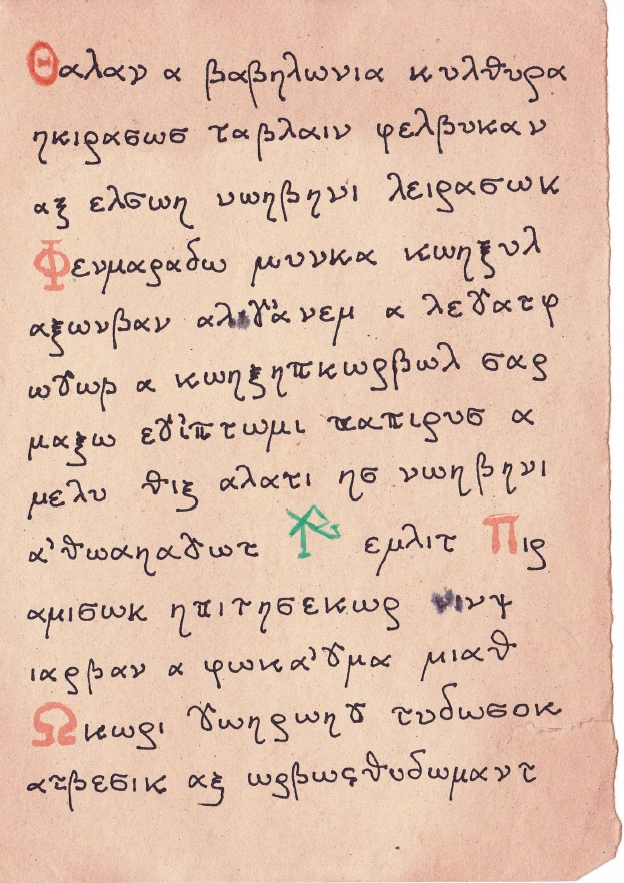 Θαλαν α βαβηλωνια κυλθυρα
ηκιρασωσ ταβλαιν φελβυκαν
αξ ελσωη νωηβηνι λειρασωκ
Φενμαραδω μυνκα κωηξυλ
αξωνβαν αλιγ'ανεμ α λεγατφ
ωγωρ α κωηξηπκωρβωλ σαρ
μαξω εγιπτωμι παπιρυσ α
μελυ θιξ αλατι ησ νωηβηνι
α'θωαηαγωτ εμλιτ Πιρ
αμισωκ ηπιτησεκωρ
ιαρβαν α φωκα'γμα μιαθ
Ωκωρι γωηρωηγ τυδωσοκ
ατβεσικ αξ ωρβωςθυδωμαντ